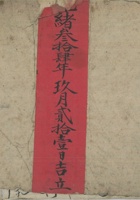 緒叁拾肆年玖月貳拾壹日吉立